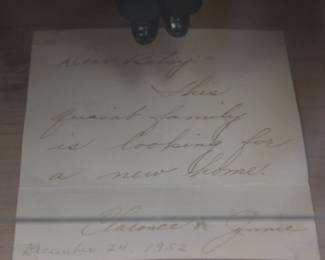 Dear Betsy -
This
quaint family
is looking for
a new home.
Clarence &
December 24, 1952